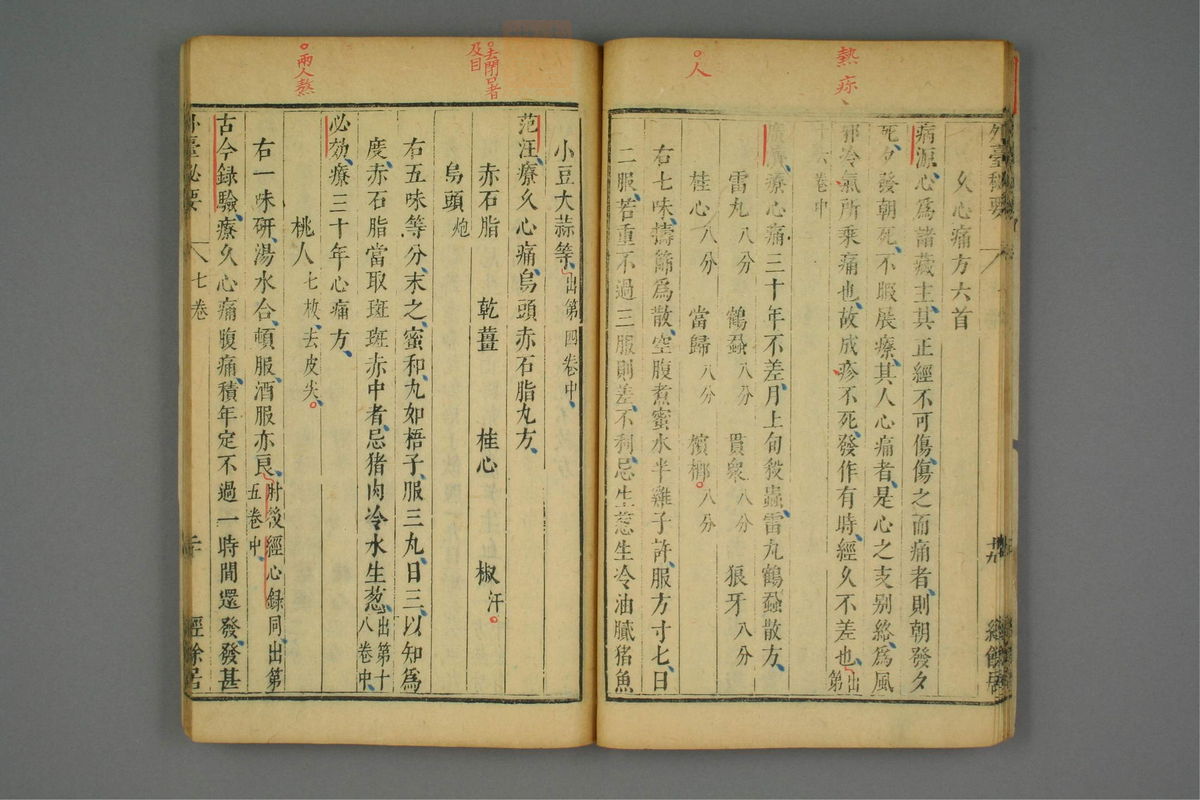 熱疢
人
外臺秘要
十九
經餘居
久心痛方六首
病源心爲諸藏主其正經不可傷傷之而痛者則朝發夕
死夕發朝死不暇展療其人心痛者是心之支别絡爲風
邪冷氣所乘痛也故成疹不死發作有時經久不差也出第
十六卷中
療心痛三十年不差月上旬殺蟲雷丸鶴蝨散方
雷丸八分 鶴蝨八分 貫衆八分 狼牙八分
桂心八分 當歸八分 檳榔八分
右七味擣篩爲散空腹煮蜜水半雞子許服方寸匕日
二服若重不過三服則差不利忌生葱生冷油膩猪魚
去閉口者
及目
兩人熬
小豆大蒜等出第四卷中
范汪療久心痛烏頭赤石脂丸方
赤石脂 乾薑 桂心 椒汗
烏頭炮
右五味等分末之蜜和丸如梧子服三丸日三以知爲
度赤石脂當取斑斑赤中者忌猪肉冷水生葱出第十八卷中
必效療三十年心痛方
桃人七枚去皮尖
右一味研湯水合頓服酒服亦良肘後經心録同出第五卷中
古今録驗療久心痛腹痛積年定不過一時間還發發甚
外臺秘要
七卷
二十
經餘居